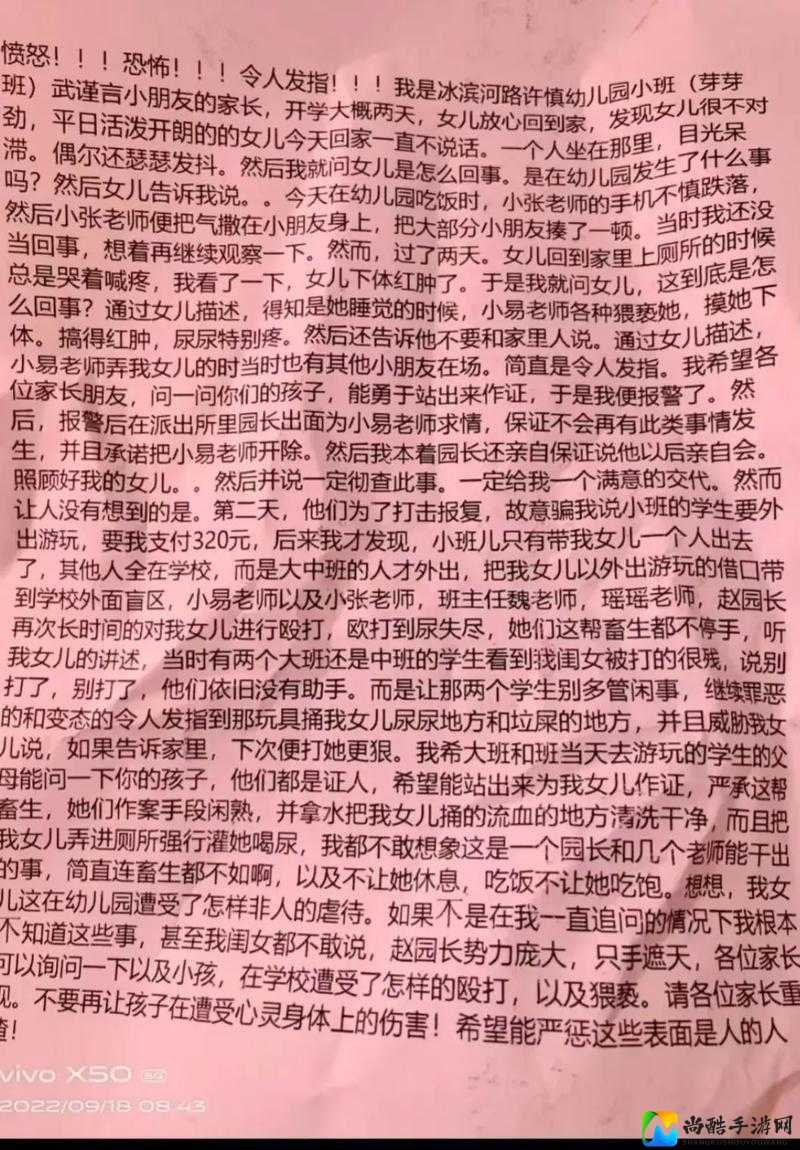 愤怒！！！恐怖！！！令人发指！！！我是冰滨河路许慎幼儿园小班（芽芽
班）武谨言小朋友的家长，开学大概两天，女儿放心回到家，发现女儿很不对
劲，平日活泼开朗的的女儿今天回家一直不说话。一个人坐在那里，目光呆
滞。偶尔还瑟瑟发抖。然后我就问女儿是怎么回事。是在幼儿园发生了什么事
吗？然后女儿告诉我说。。今天在幼儿园吃饭时，小张老师的手机不慎跌落，
然后小张老师便把气撒在小朋友身上，把大部分小朋友揍了一顿。当时我还没
当回事，想着再继续观察一下。然而，过了两天。女儿回到家里上厕所的时候
总是哭着喊疼，我看了一下，女儿下体红肿了。于是我就问女儿，这到底是怎
么回事？通过女儿描述，得知是她睡觉的时候，小易老师各种猥亵她，摸她下
体。搞得红肿，尿尿特别疼。然后还告诉他不要和家里人说。通过女儿描述，
小易老师弄我女儿的时当时也有其他小朋友在场。简直是令人发指。我希望各
位家长朋友，问一问你们的孩子，能勇于站出来作证，于是我便报警了。然
后，报警后在派出所里园长出面为小易老师求情，保证不会再有此类事情发
生，并且承诺把小易老师开除。然后我本着园长还亲自保证说他以后亲自会。
照顾好我的女儿。。然后并说一定彻查此事。一定给我一个满意的交代。然而
让人没有想到的是。第二天，他们为了打击报复，故意骗我说小班的学生要外
出游玩，要我支付320元，后来我才发现，小班儿只有带我女儿一个人出去
了，其他人全在学校，而是大中班的人才外出，把我女儿以外出游玩的借口带
到学校外面盲区，小易老师以及小张老师，班主任魏老师，瑶瑶老师，赵园长
再次长时间的对我女儿进行殴打，欧打到尿失尽，她们这帮畜生都不停手，听
我女儿的讲述，当时有两个大班还是中班的学生看到我闺女被打的很残，说别
打了，别打了，他们依旧没有助手。而是让那两个学生别多管闲事，继续罪恶
的和变态的令人发指到那玩具捅我女儿尿尿地方和垃屎的地方，并且威胁我女
儿说，如果告诉家里，下次便打她更狠。我希大班和班当天去游玩的学生的父
母能问一下你的孩子，他们都是证人，希望能站出来为我女儿作证，严承这帮
畜生，她们作案手段闲熟，并拿水把我女儿捅的流血的地方清洗干净，而且把
我女儿弄进厕所强行灌她喝尿，我都不敢想象这是一个园长和几个老师能干出
的事，简直连畜生都不如啊，以及不让她休息，吃饭不让她吃饱。想想，我女
儿这在幼儿园遭受了怎样非人的虐待。如果不是在我一直追问的情况下我根本
不知道这些事，甚至我闺女都不敢说，赵园长势力庞大，只手遮天，各位家长
可以询问一下以及小孩，在学校遭受了怎样的殴打，以及猥亵。请各位家长重
视。不要再让孩子在遭受心灵身体上的伤害！希望能严惩这些表面是人的人
渣！
vivo X50 5G
2022/09/18 08:43
尚酷手游网
SHANGKUSHOUYOUWANG